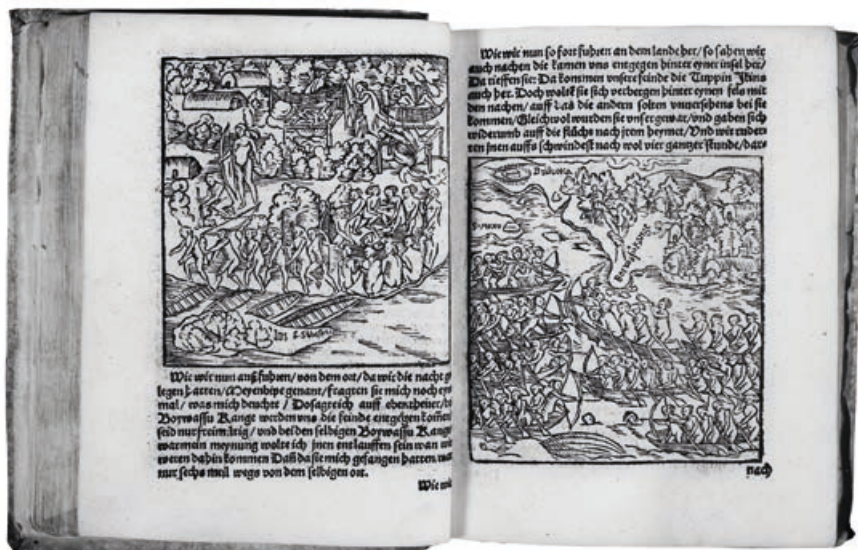 Wie wir nun auß fuhren/ von dem ort/ da wir die nacht ge
legen hatten/ Meyenbipe genant/ fragten sie mich noch eyn
mal/ was mich deuchte / Do sagte ich auff ebentheuer/
Boywassu Kange werden vns die feinde entgegen kommen
seid nur freimütig/ vnd bei den selbigen Boywassu Kange
war mein meynung wolte ich jnen entlauffen sein wan wir
weren dahin kommen Dañ da sie mich gefangen hatten
nur sechs meil wegs von dem selbigen ort.
Wie wir
Wie wir nun so fort fuhren an dem lande her/ so sahen wir
auch nachen die kamen vns entgegen hinter eyner insel her/
Da rieffen sie: Da kommen vnsere feinde die Tuppin Ikins
auch her. Doch wolten sie sich verbergen hinter eynen fels mit
den nachen/ auff das die andern solten vnuersehens bei sie
kommen/ Gleichwol wurden sie vnser gewar/ vnd gaben sich
widerumb auff die flucht nach jrem heymet/ Vnd wir ruder-
ten jnen auffs schwindest nach wol vier gantzer stunde/ dar-
nach